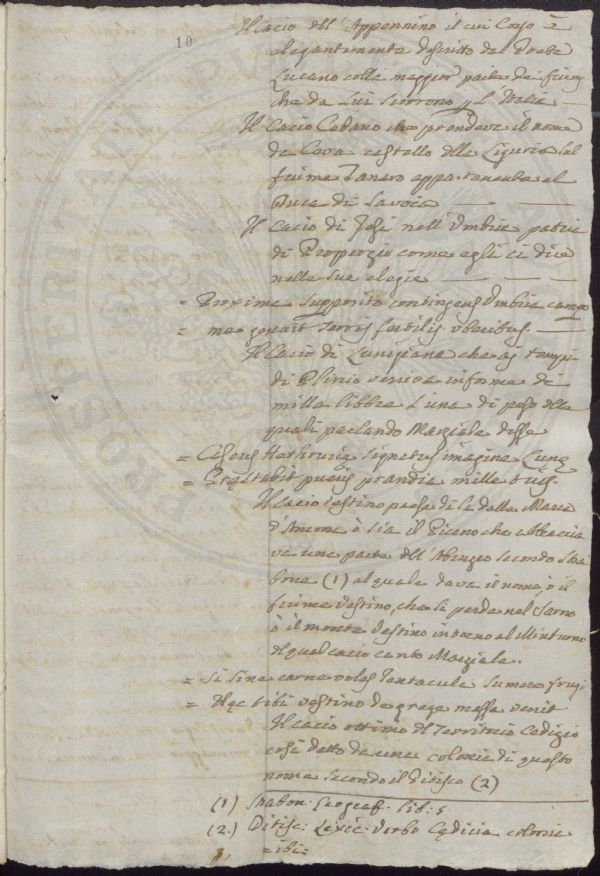 10
Il cacio dell' Appennino il cui Corso è
elegantemente descritto dal Poeta
Lucano colla maggior parte de fiumi
che da lui scorrono p L' Italia
Il Cacio Cebano che prendeva il nome
da Ceva castello della Liguria sul
fiume Tanaro appartenente al
Duca di Savoia
Il Cacio di Jesi nell' Umbria patria
di Properzio come egli ci dice
nelle sue elegie
= Proxima supposito contingens Umbria campo
= me genuit terris fertilis uberibus.
Il Cacio di Lunigiana che a's tempi
di Plinio veniva in forme di
mille libbre l' una di peso delle
quali parlando Marziale disse
= Caseus Hethruriæ signatus imagine Lunæ
= Præstabit pueris prandia mille tuis.
Il cacio vestino paese di là dalla Marca
d' Ancona ò sia il Piceno che abbraccia
va una parte dell' Abruzzo secondo Stra
bone (1) al quale dava il nome, ò il
fiume Vestino, che si perde nel Sarno
ò il monte Vestino intorno al Minturno
del qual cacio cantò Marziale.
= Si sine carne voles jentacula sumere frugi
= Hæc tibi vestino de grege massa venit
Il cacio ottimo del Territorio Cedizio
così detto da una colonia di questo
nome secondo il Pitisco (2)
(1) Strabon: Geograf: lib: 5
(2) Pitisc: Lexic: verbo Cædicia colonia
= ibi =
PROSPERITATI